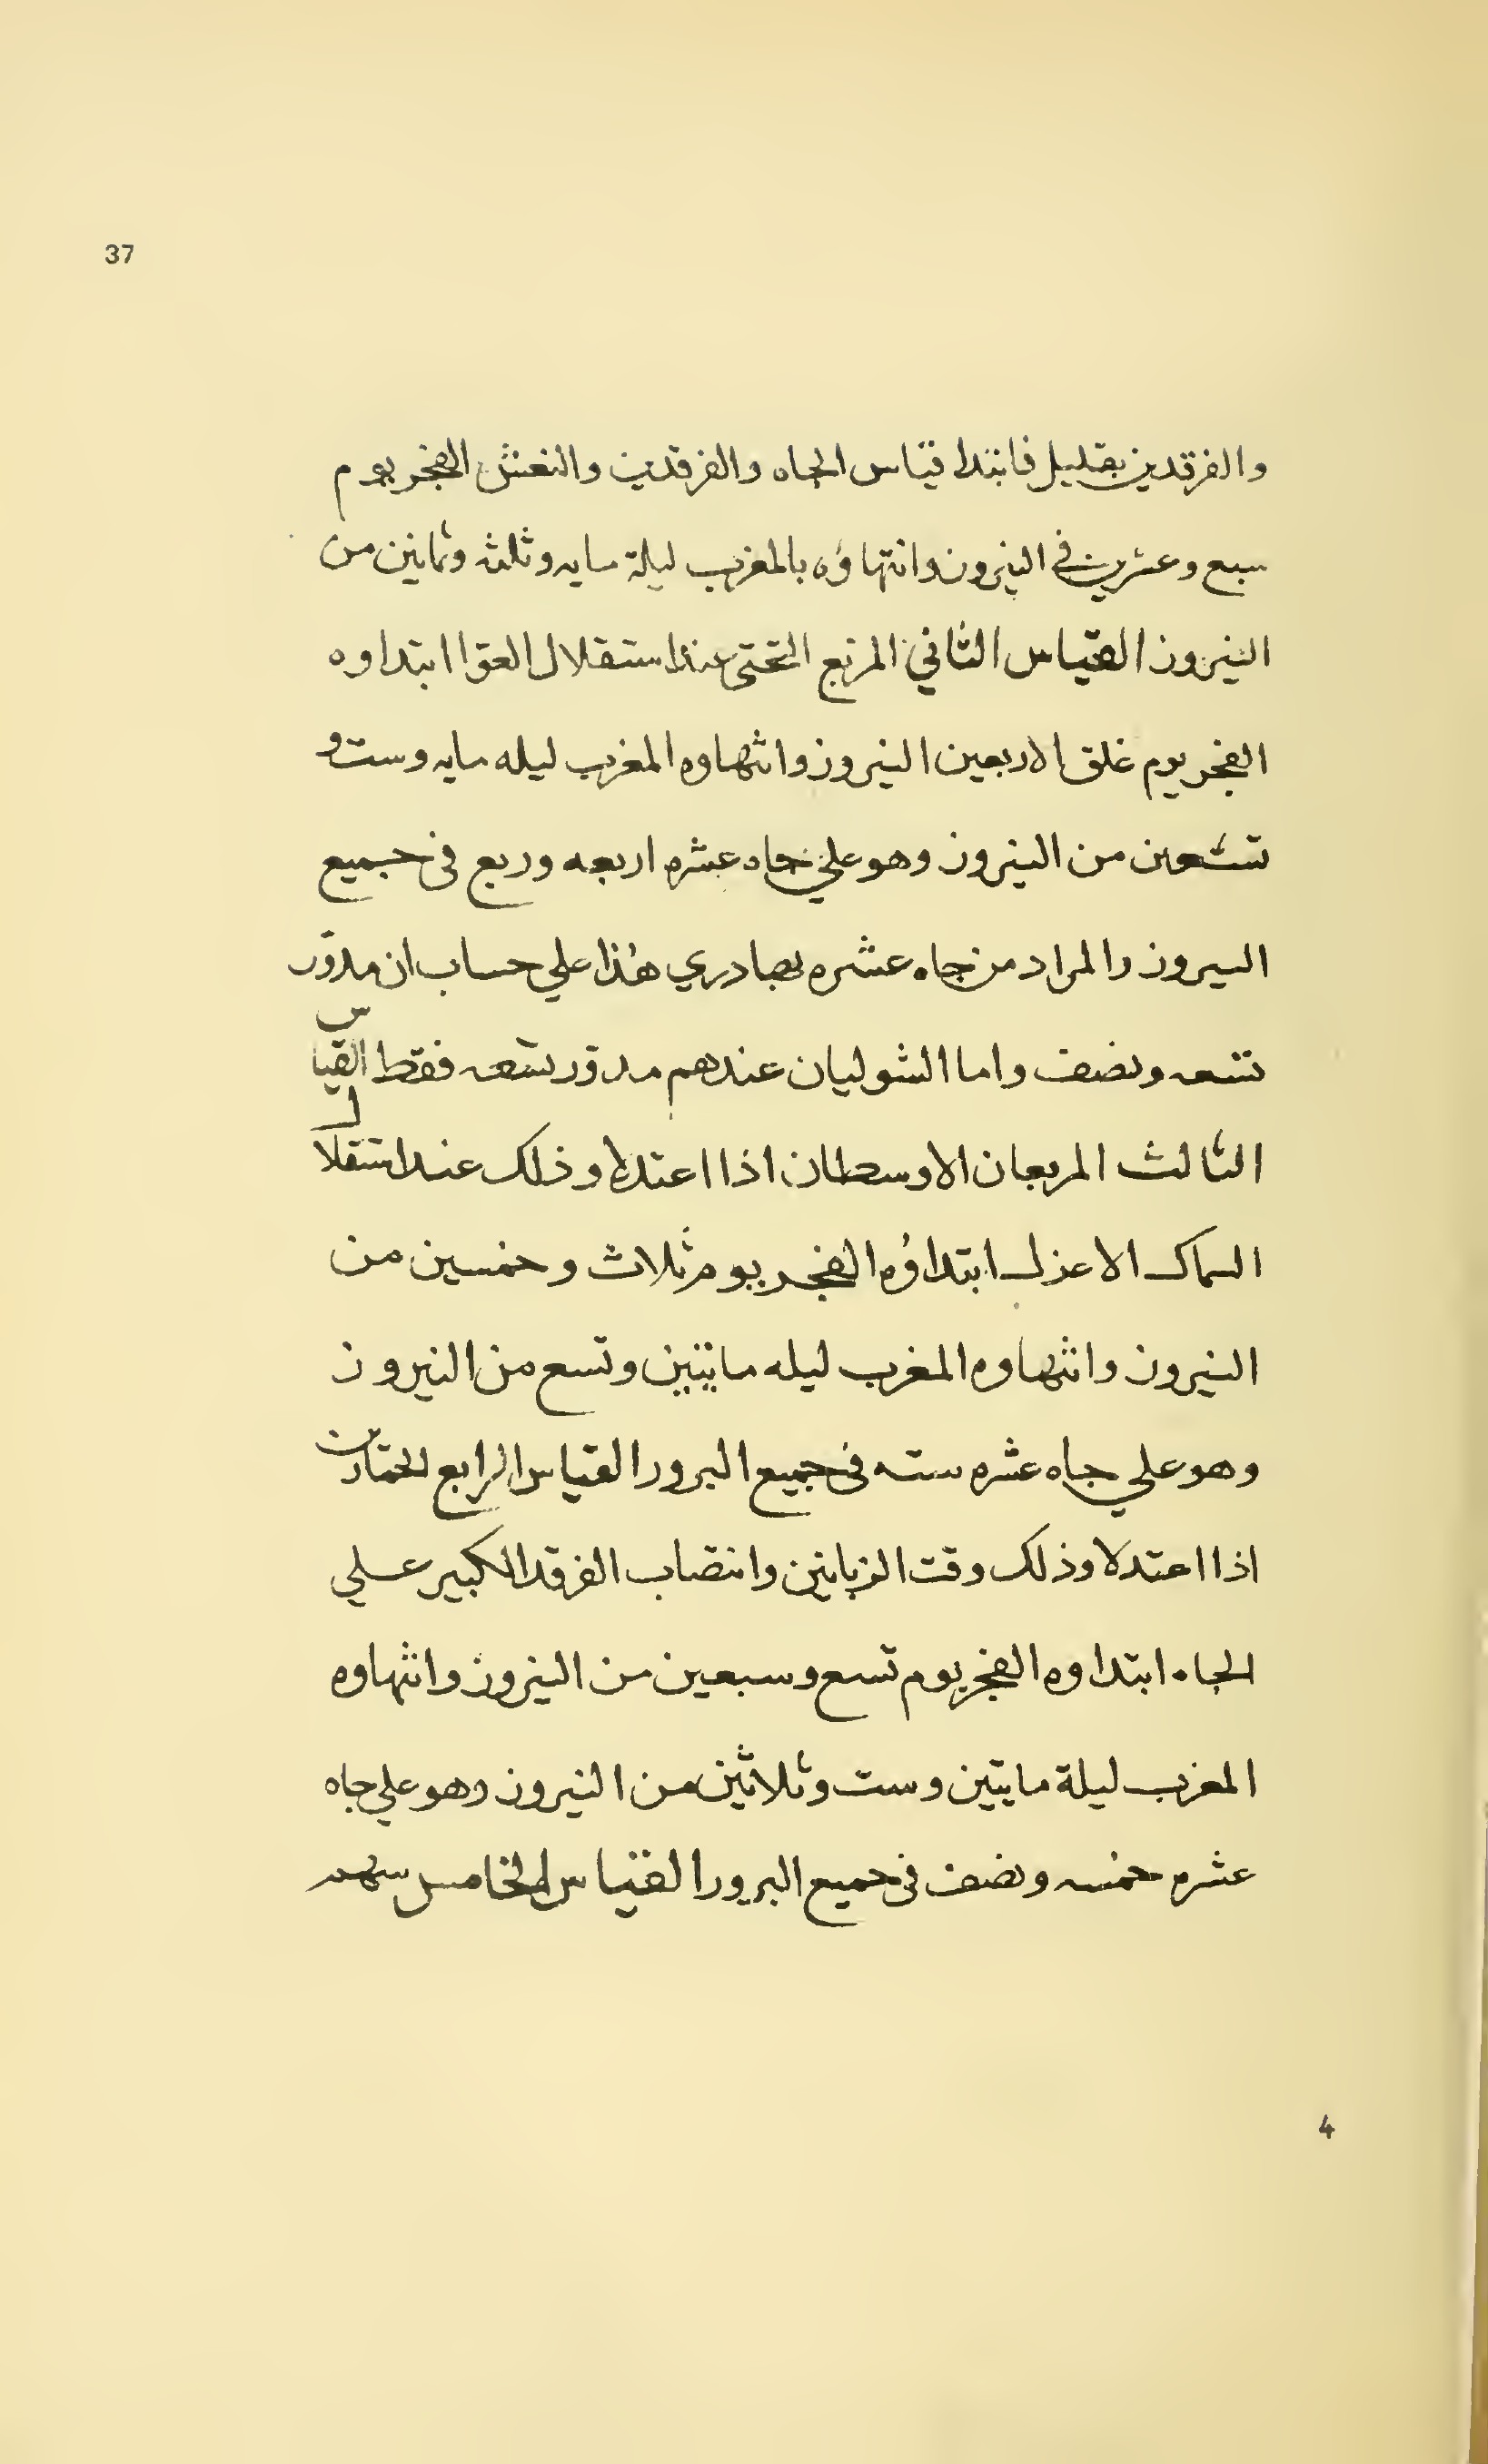 37
والفرقدين بقليل فابتدا قياس الجاه والفرقدين والنعش الفجر يوم
سبع وعشرين في النيروز وانتهاؤه بالمغرب ليلة مايه وثلثه وثمانين من
النيروز القياس الثاني المربع التحتي عند استقلال العوا ابتداوه
الفجر يوم غلق الاربعين النيروز وانتهاوه المغرب ليله مايه وست و
تسعين من النيروز وهو علي جاه عشره اربعه وربع في جميع
النيروز والمراد من جاه عشره هذا علي حساب ان مدوّر
تسعه ونصف واما الشوليان عندهم مدوّر تسعه فقط القياس
الثالث المربعان الاوسطان اذا اعتدلا وذلك عند استقلال
السماك الاعزل ابتداؤه الفجر يوم ثلاث وخمسين من
النيروز وانتهاوه المغرب ليله مايتين وتسع من النيروز
وهو علي جاه عشره سته في جميع النيروز القياس الرابع الحمارين
اذا اعتدلا وذلك وقت الزبانين وانتصاب الفرقد الكبير علي
الجاه ابتداوه الفجر يوم تسع وسبعين من النيروز وانتهاوه
المغرب ليلة مايتين وست وثلاثين من النيروز وهو علي جاه
عشره خمسه ونصف في جميع النيروز القياس الخامس
4